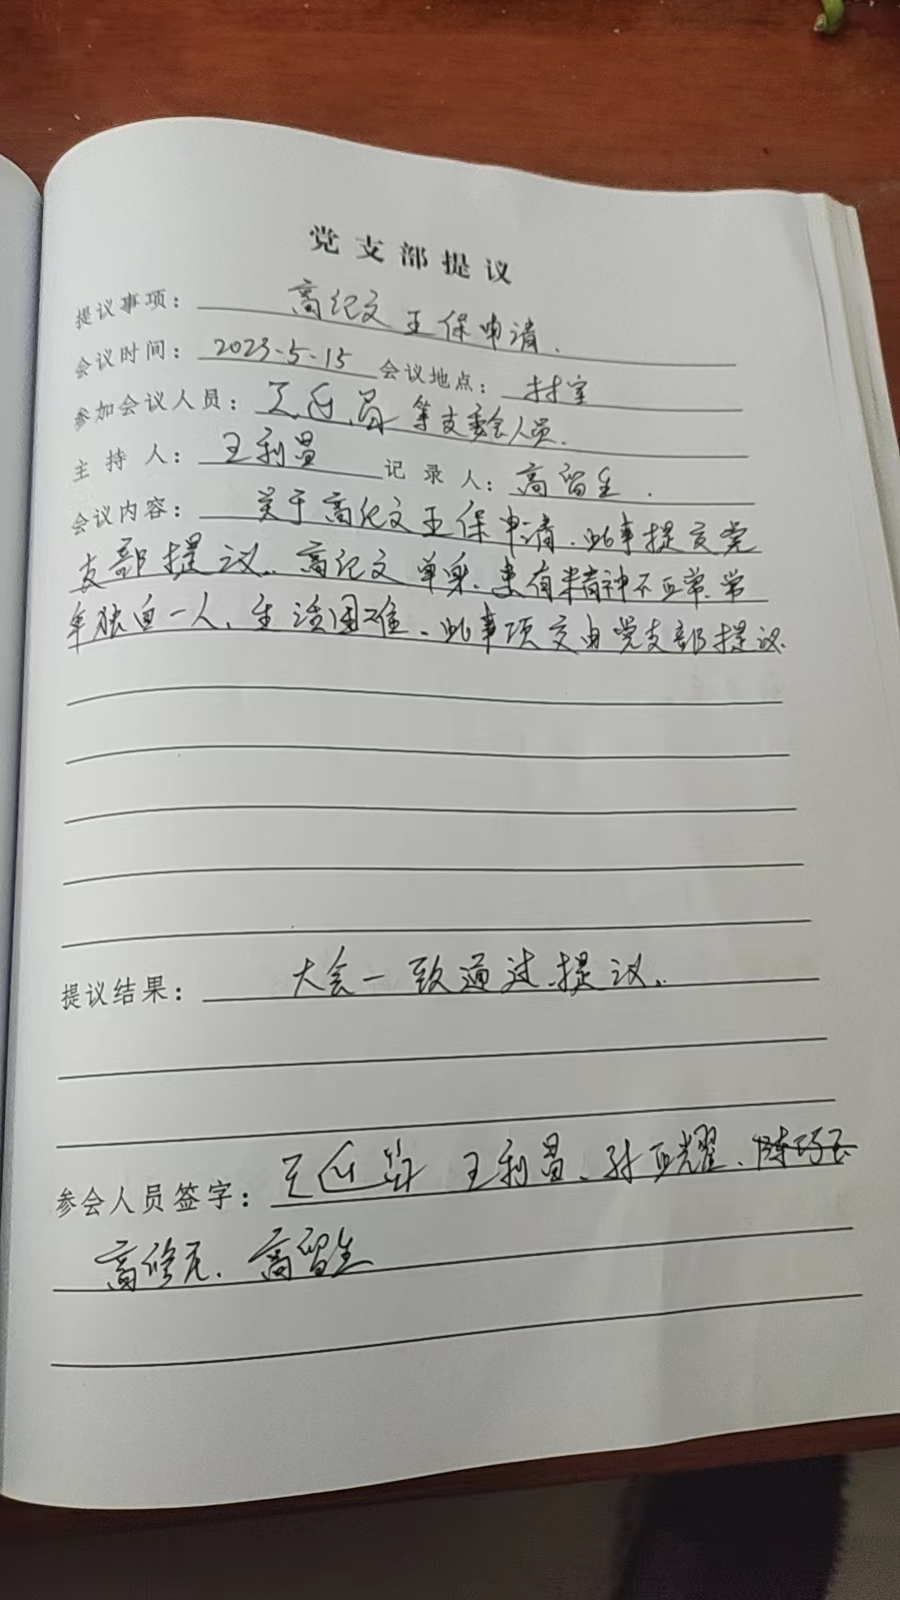 党支部提议
提议事项： 高纪文五保申请.
会议时间： 2023-5-15 会议地点： 村室
参加会议人员： 等支委会人员.
主持人： 王利昌 记录人： 高留生.
会议内容： 关于高纪文五保申请.此事提交党
支部提议.高纪文单身.患有精神不正常.常
年独自一人.生活困难.此事项交由党支部提议.
提议结果： 大会一致通过提议.
参会人员签字： 王利昌、孙正耀、陈巧玉
高修元.高留生